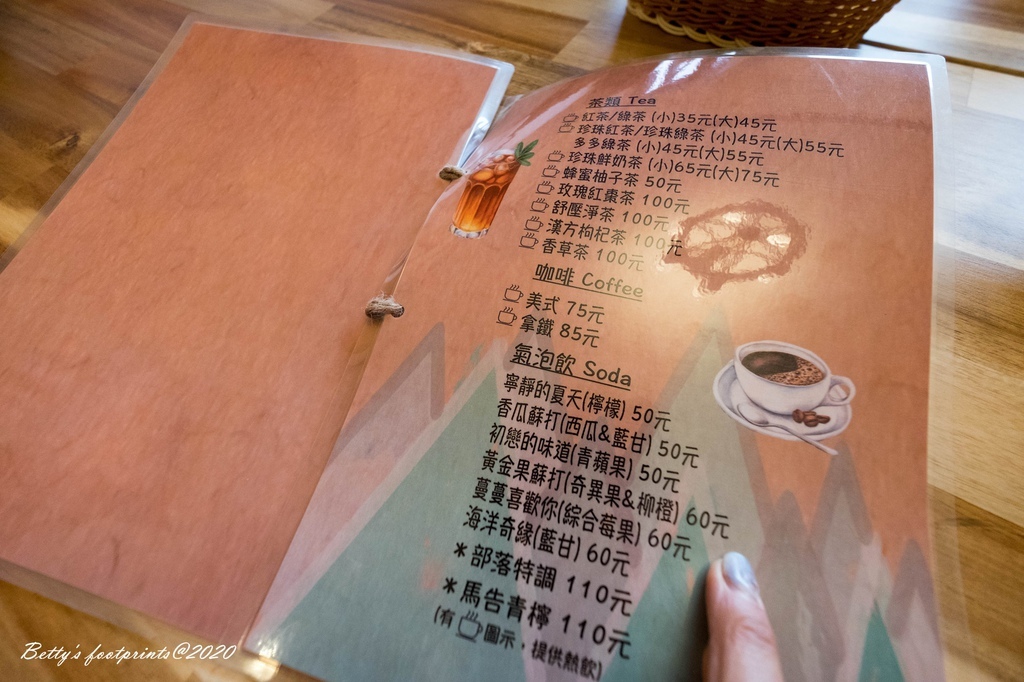 茶類 Tea
紅茶/綠茶 (小)35元(大)45元
珍珠紅茶/珍珠綠茶 (小)45元(大)55元
多多綠茶 (小)45元(大)55元
珍珠鮮奶茶 (小)65元(大)75元
蜂蜜柚子茶 50元
玫瑰紅棗茶 100元
舒壓淨茶 100元
漢方枸杞茶 100元
香草茶 100元
咖啡 Coffee
美式 75元
拿鐵 85元
氣泡飲 Soda
寧靜的夏天(檸檬) 50元
香瓜蘇打(西瓜&藍甘) 50元
初戀的味道(青蘋果) 50元
黃金果蘇打(奇異果&柳橙) 60元
蔓蔓喜歡你(綜合莓果) 60元
海洋奇緣(藍甘) 60元
*部落特調 110元
*馬告青檸 110元
(有圖示，提供熱飲)
Betty's footprints@2020